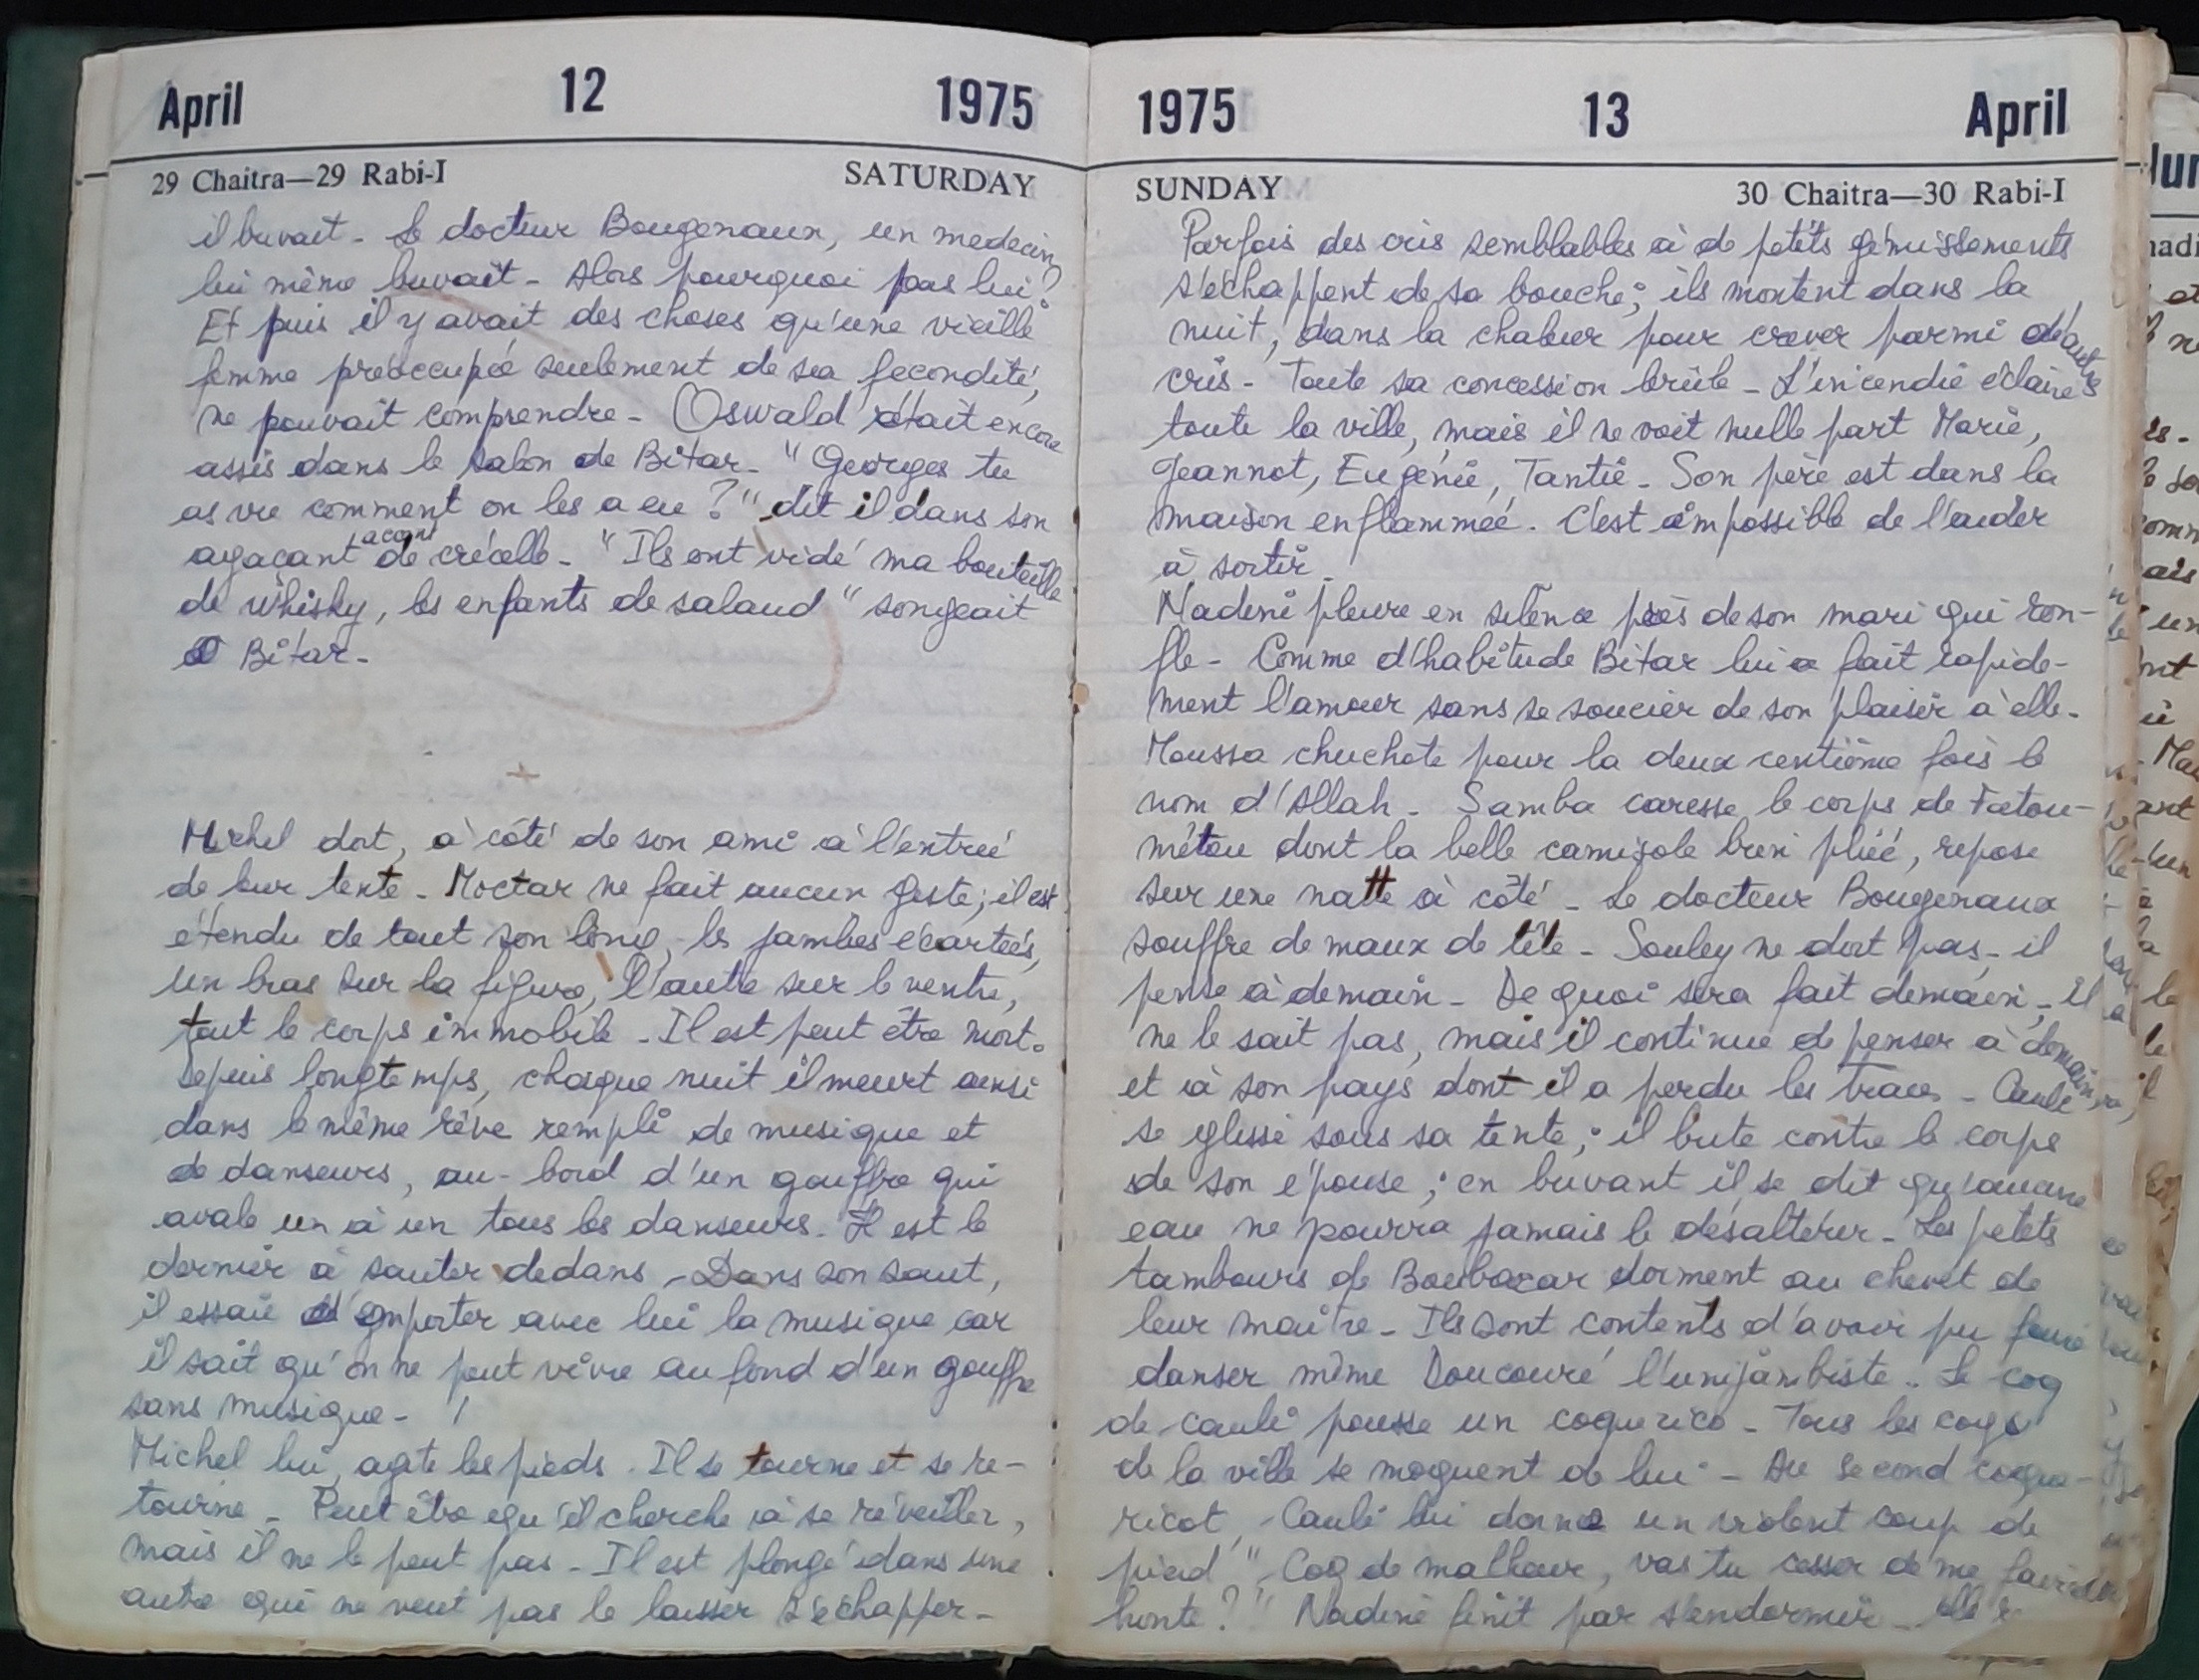 April 12 1975
29 Chaitra—29 Rabi-I SATURDAY
il buvait - Le docteur Bougenaux, un medecin
lui même buvait - Alors pourquoi pas lui?
Et puis il y avait des choses qu'une vieille
femme préoccupée seulement de sa fecondité,
ne pouvait comprendre - Oswald était encore
assis dans le salon de Bitar - "Georges tu
as vu comment on les a eu ?" dit il dans son
agaçant accent de crécelle - "Ils ont vidé ma bouteille
de whisky, les enfants de salaud" songeait
Bitar -
Michel dort, à côté de son ami à l'entrée
de leur tente - Moctar ne fait aucun geste; il est
étendu de tout son long, les jambes écartées,
un bras sur la figure, l'autre sur le ventre,
tout le corps immobile - Il est peut être mort.
Depuis longtemps, chaque nuit il meurt ainsi
dans le même rêve rempli de musique et
de danseurs, au-bord d'un gouffre qui
avale un à un tous les danseurs. Il est le
dernier à sauter dedans - Dans son saut,
il essaie d'emporter avec lui la musique car
il sait qu'on ne peut vivre au fond d'un gouffre
sans musique - !
Michel lui, agite les pieds. Il se tourne et se re-
tourne - Peut être qu'il cherche à se réveiller,
mais il ne le peut pas - Il est plongé dans une
autre qui ne veut pas le laisser s'échapper -
1975 13 April
SUNDAY 30 Chaitra—30 Rabi-I
Parfois des cris semblables à de petits gémissements
s'échappent de sa bouche; ils montent dans la
nuit, dans la chaleur pour crever parmi d'autres
cris - Toute sa concession brûle - L'incendie éclaire
toute la ville, mais il ne voit nulle part Marie,
Jeannot, Eugénie, Tantie - Son père est dans la
maison enflammée. C'est impossible de l'aider
à sortir -
Nadine pleure en silence près de son mari qui ron-
fle - Comme d'habitude Bitar lui a fait rapide-
ment l'amour sans se soucier de son plaisir à elle -
Moussa chuchote pour la deux centième fois le
nom d'Allah - Samba caresse le corps de Fatou-
métou dont la belle camisole bien pliée, repose
sur une natte à côté - Le docteur Bougenaux
souffre de maux de tête - Souley ne dort pas - il
pense à demain - De quoi sera fait demain - Il
ne le sait pas, mais il continue de penser à demain
et à son pays dont il a perdu les traces - Caulé
se glisse sous sa tente; il bute contre le corps
de son épouse; en buvant il se dit qu'aucune
eau ne pourra jamais le désaltérer - Les petits
tambours de Boubacar dorment au chevet de
leur maître - Ils sont contents d'avoir pu faire
danser même Doucouré l'unijambiste. Le coq
de Caulé pousse un coquerico - Tous les coqs
de la ville se moquent de lui - Au second coque-
ricot, Caulé lui donne un violent coup de
pied "Coq de malheur, vas tu cesser de me faire
honte ?" Nadine finit par s'endormir -